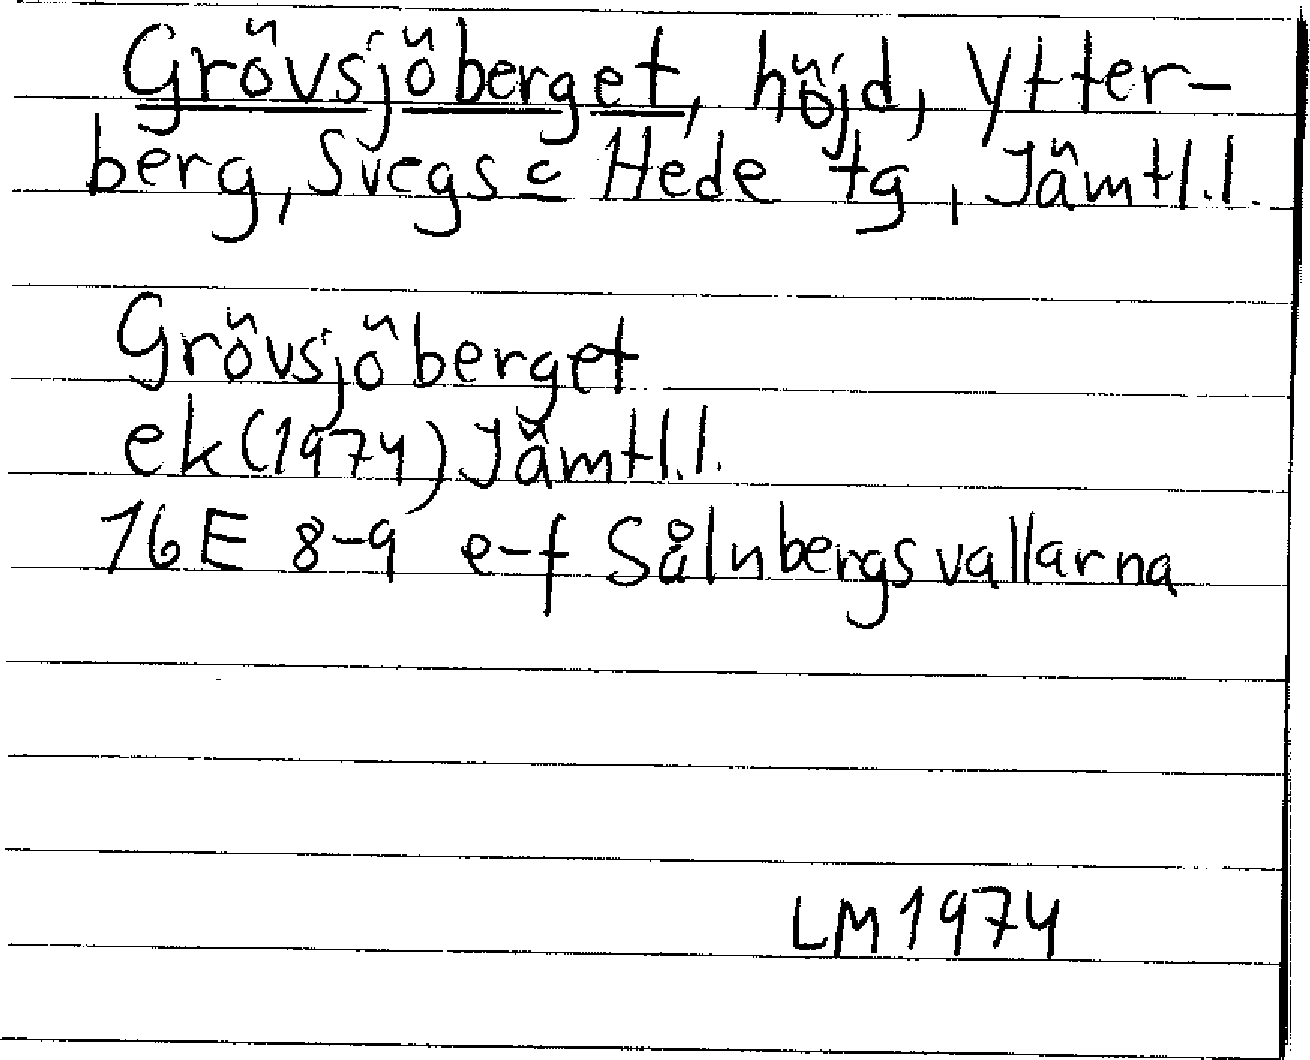 Grövsjöberget, höjd, Ytter-
berg, Svegs= Hede tg, Jämtl.l.
Grövsjöberget
ek(1974) Jämtl.l.
16E 8-9 e-f Sålnbergsvallarna
LM 1974